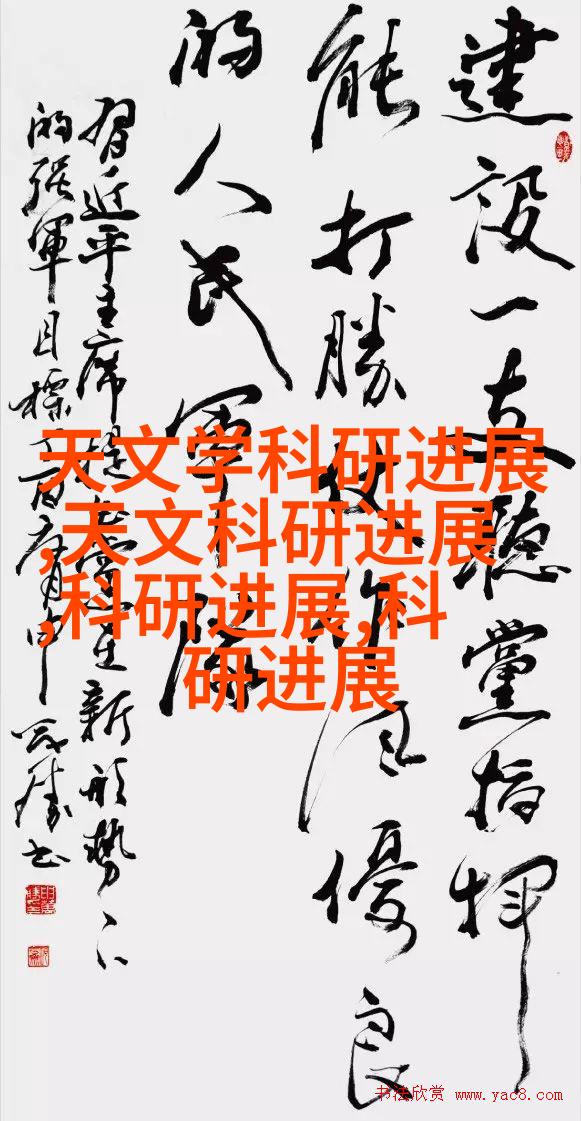 建設一支聽黨指揮
能打勝仗作風優良
的人民軍隊
習近平主席提出黨在新形勢下
的强軍目標
天文学科研进展
,天文科研进展
,科研进展,科
研进展
书法欣赏 www.yac8.com